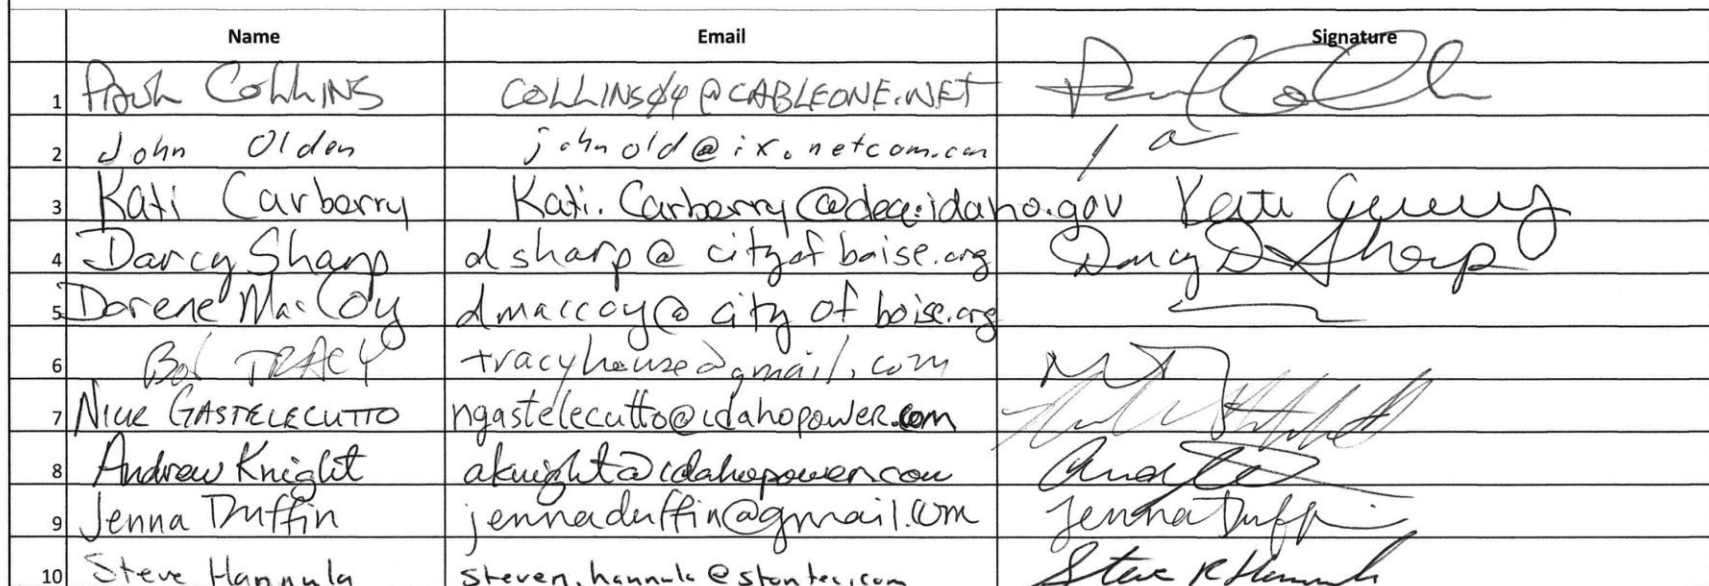 Name Email Signature
1 Paul Collins COLLINS04@CABLEONE.NET Paul Colli
2 John Olden johnold@ix.netcom.com
3 Kati Carberry Kati.Carberry@deq.idaho.gov Kati
4 Darcy Sharp dsharp@cityofboise.org Darcy D Sharp
5 Dorene MacCoy dmaccoy@cityofboise.org
6 Bob TRACY tracyhouse@gmail.com
7 Nick GASTELECUTTO ngastelecutto@idahopower.com
8 Andrew Knight aknight@idahopower.com
9 Jenna Duffin jennaduffin@gmail.com Jenna Duffin
10 Steve Hannula steven.hannula@stantec.com Steve R Hannula